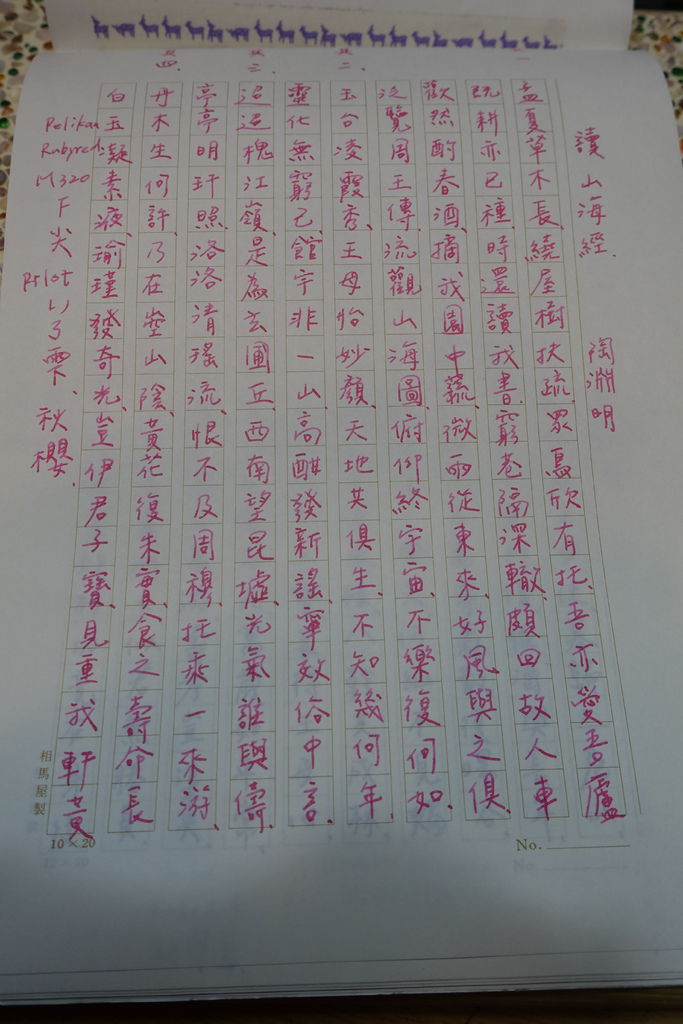 讀山海經、陶淵明
孟夏草木長、繞屋樹扶疏、眾鳥欣有托、吾亦愛吾廬
既耕亦已種、時還讀我書、窮巷隔深轍、頗回故人車
歡然酌春酒、摘我園中蔬、微雨從東來、好風與之俱、
泛覽周王傳、流觀山海圖、俯仰終宇宙、不樂復何如、
其二、
玉台凌霞秀、王母怡妙顏、天地共俱生、不知幾何年、
靈化無窮已、館宇非一山、高酣發新謠、寧效俗中言、
其三、
迢遞槐江嶺、是為玄圃丘、西南望昆墟、光氣誰與儔、
亭亭明玕照、洛洛清瑤流、恨不及周穆、托乘一來游、
其四、
丹木生何許、乃在峚山陰、黃花復朱實、食之壽命長
白玉凝素液、瑜瑾發奇光、豈伊君子寶、見重我軒黃
Pelikan
Rubyred
M320
F尖
Pilot
いろ雫、秋櫻.
相馬屋製
10×20
No.